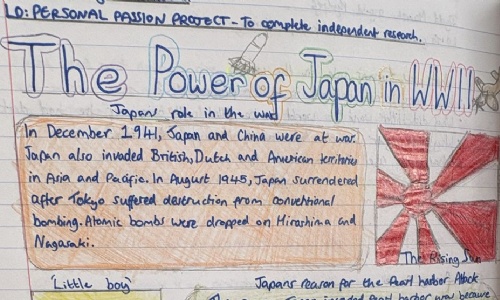 LO: PERSONAL PASSION PROJECT - To complete independent research.
The Power of Japan in WWII
Japan role in the war
In December 1941, Japan and China were at war.
Japan also invaded British, Dutch and American territories
in Asia and Pacific. In August 1945, Japan surrendered
after Tokyo suffered destruction from conventional
bombing. Atomic bombs were dropped on Hiroshima and
Nagasaki.
The Rising Sun
'Little boy'
Japans reason for the Pearl harbor Attack
invaded Pearl harbor was because